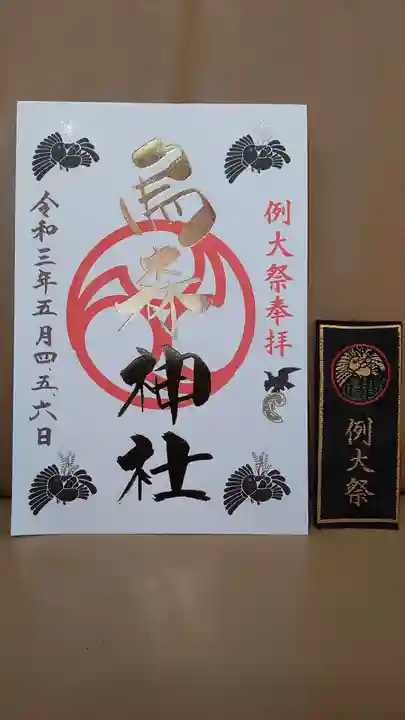 例大祭奉拝
烏森神社
令和三年五月四、五、六日
例大祭